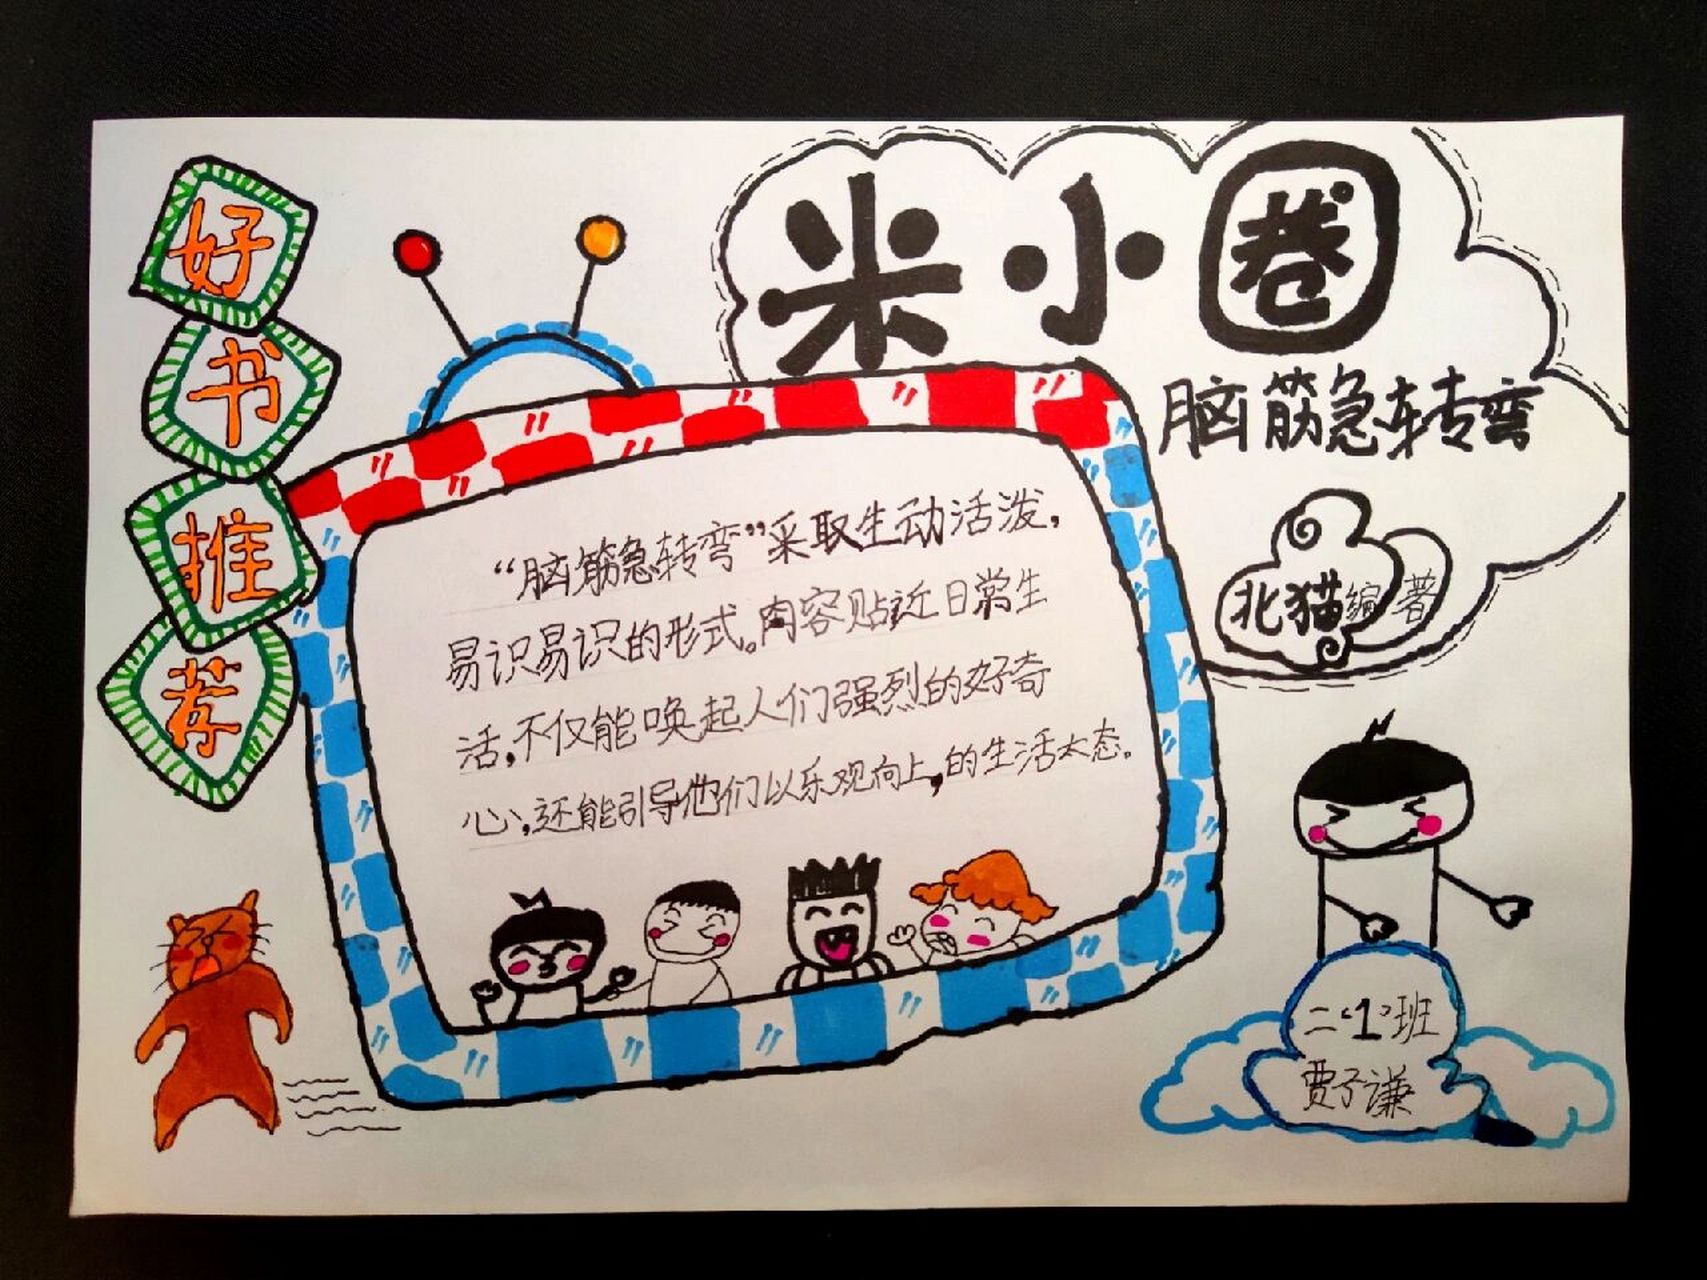 好书推荐
米小圈
脑筋急转弯
北猫编著
“脑筋急转弯”采取生动活泼,
易识易识的形式。内容贴近日常生
活,不仅能唤起人们强烈的好奇
心,还能引导他们以乐观向上,的生活太态。
二“1”班
贾子谦